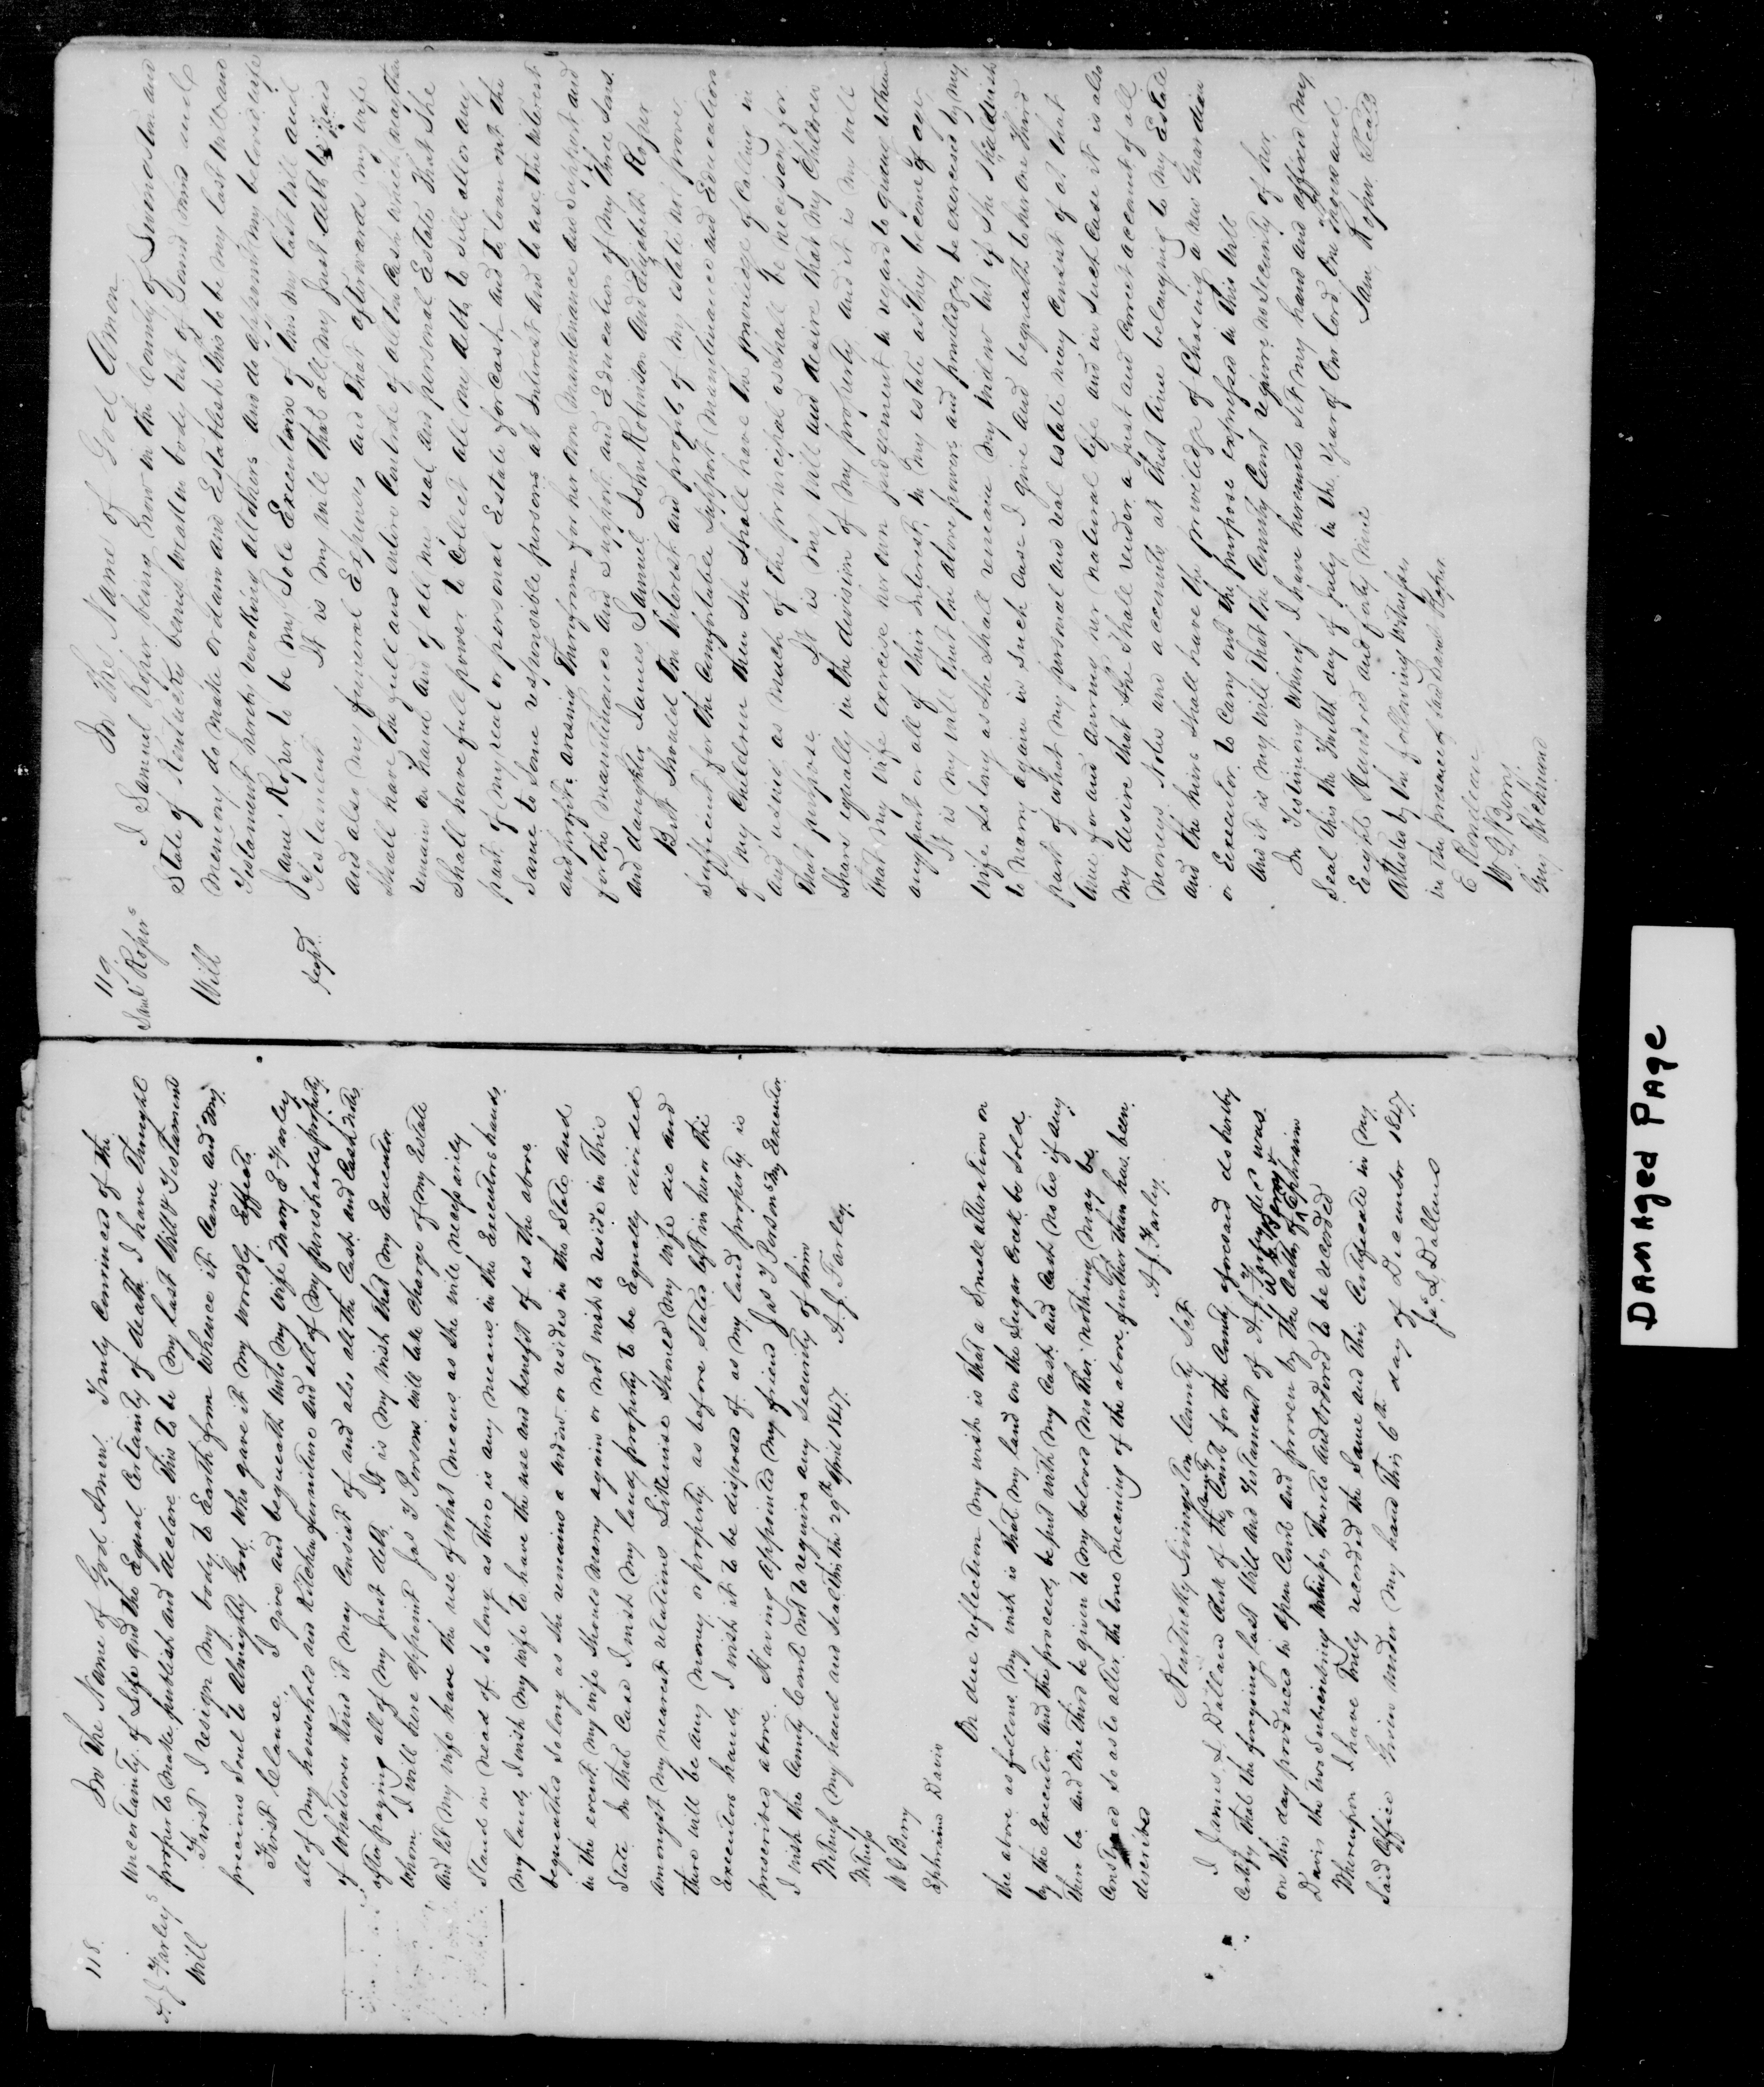 118.
A. J. Farley's
Will
In the Name of God Amen. Truly Convinced of the
uncertainty of Life and the Equal Certainty of death I have thought
proper to make publish and declare this to be my last Will & Testament
First I resign my body to Earth from whence it Came and my
precious Soul to Almighty God who gave it My worldly Effects
First Clause. I give and bequeath unto my wife Mary E Farley
all of my household and Kitchen furniture and all of my perishable property
of whatever kind it may Consist of and also all the Cash and Cash notes
after paying all of my Just debts It is my wish that my Executor
whom I will here appoint Jas Y Persons will take charge of my Estate
and let my wife have the use of what means as she will necessarily
Stand in need of so long as there is any means in the Executors hands.
My land, I wish my wife to have the use and benefit of as the above
bequeathed so long as she remains a widow or resides in the State and
in the event my wife should marry again or not wish to reside in this
State in that Case I wish my land, property to be Equally divided
amongst my nearest relations Likewise should my wife die and
there will be any money or property as before stated left in her or the
Executors hands I wish it to be disposed of as my land property is
prescribed above. Having appointed my friend Jas Y Persons my Executor
I wish the County Court not to require any security of him
Witness my hand and seal this the 29th April 1847. A. J. Farley.
Witness
W G Berry
Ephraim Davis
On due reflection my wish is that a Small alteration on
the above as follows My wish is that my land on the Sugar Creek be sold
by the Executor and the proceeds be put with my Cash and Cash notes if any
there be and One third be given to my beloved Mother nothing may be
Construed so as to alter the true meaning of the above further than has been
described A. J. Farley.
Kentucky Livingston County Sct.
I James L Dallam Clerk of the County Court for the County aforesaid do hereby
Certify that the foregoing last Will and Testament of A. J. Farley decd was
on this day produced in open Court and proven by the Oaths of W G Berry & Ephraim
Davis the two Subscribing Witnesses thereto and Ordered to be recorded
Whereupon I have truly recorded the Same and this Certificate in My
Said Office Given under My hand this 6th day of December 1847.
Jas L Dallam
119.
Saml Roper's
Will
In the Name of God Amen
I Samuel Roper being now in the County of Livingston and
State of Kentucky being weak in body but of sound mind and
memory do make ordain and Establish this to be my last will and
Testament hereby revoking all others and do appoint my beloved wife
Jane Roper to be my Sole Executrix of this my last Will and
Testament It is my will that all my Just debts be paid
and also my funeral Expenses and that afterwards my wife
Shall have the full and entire Control of all the Cash which may then
remain on hand and of all my real and personal Estate that She
Shall have full power to Collect all my debts to sell all or any
part of my real or personal Estate for Cash and to loan out the
Same to Some responsible persons at Interest and to use the interest
and profits arising therefrom for her own maintenance and support and
for the maintenance and Support and Education of my three sons
and daughter James Samuel John Robinson and Elizabeth Roper
But Should the Interest and profits of my estate not prove
Sufficient for the Comfortable Support Maintenance and Education
of my Children then She Shall have the priviledge of Calling in
and using as much of the principal as shall be necessary for
that purpose It is my will and desire that my Children
Share equally in the division of my property and it is my will
that my wife exercise her own judgement in regard to giving them
any part or all of their Interest in my estate as they become of age
It is my will that the above powers and priviledges be exercised by my
wife so long as she shall remain my widow but if she should wish
to marry again in such Case I give and bequeath to her One Third
part of what my personal and real estate may Consist of at that
time for and during her natural life and in such Case it is also
my desire that she shall render a just and correct account of all
moneys Notes and accounts at that time belonging to my Estate
and the heirs shall have the priviledge of Chosing a new Guardian
or Executor to Carry out the purpose expressed in this Will
and it is my will that the County Court require no Security of her
In Testimony whereof I have hereunto Set my hand and affixed my
Seal this the Twelfth day of July in the year of Our Lord One Thousand
Eight Hundred and forty Nine Sam Roper Seal
Attested by the following witnesses
in the presence of said Saml Roper.
W G Berry
Guy Richmond
DAMAged PAge